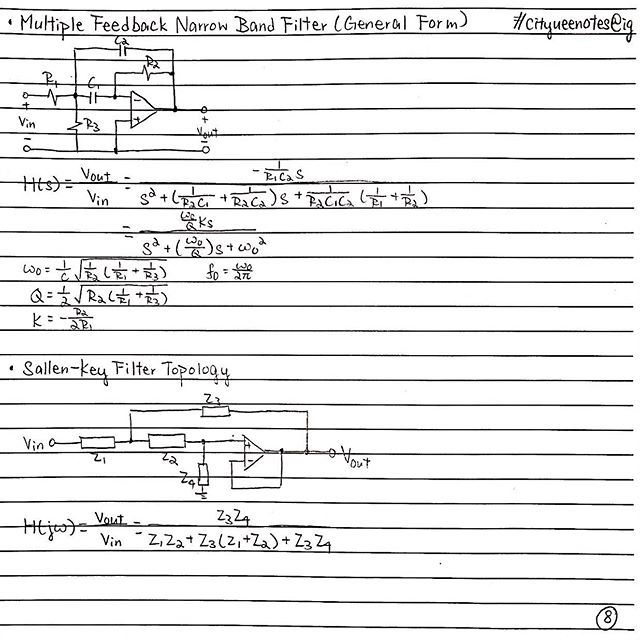 • Multiple Feedback Narrow Band Filter (General Form) #cityueenotes@ig
C2
R2
R1 C1
+ - +
Vin R3 + Vout
- -
H(s) = Vout/Vin = (-1/(R1C2) s) / (s² + (1/(R2C1) + 1/(R2C2))s + 1/(R2C1C2) (1/R1 + 1/R2))
= (ω0/Q Ks) / (s² + (ω0/Q)s + ω0²)
ω0 = 1/C √(1/R2 (1/R1 + 1/R3)) f0 = ω0/2π
Q = 1/2 √(R2 (1/R1 + 1/R3))
K = -R2/2R1
• Sallen-key Filter Topology
Z3
Vin + Vout
Z1 Z2 -
Z4
H(jω) = Vout/Vin = Z3Z4 / (Z1Z2 + Z3(Z1+Z2) + Z3Z4)
8